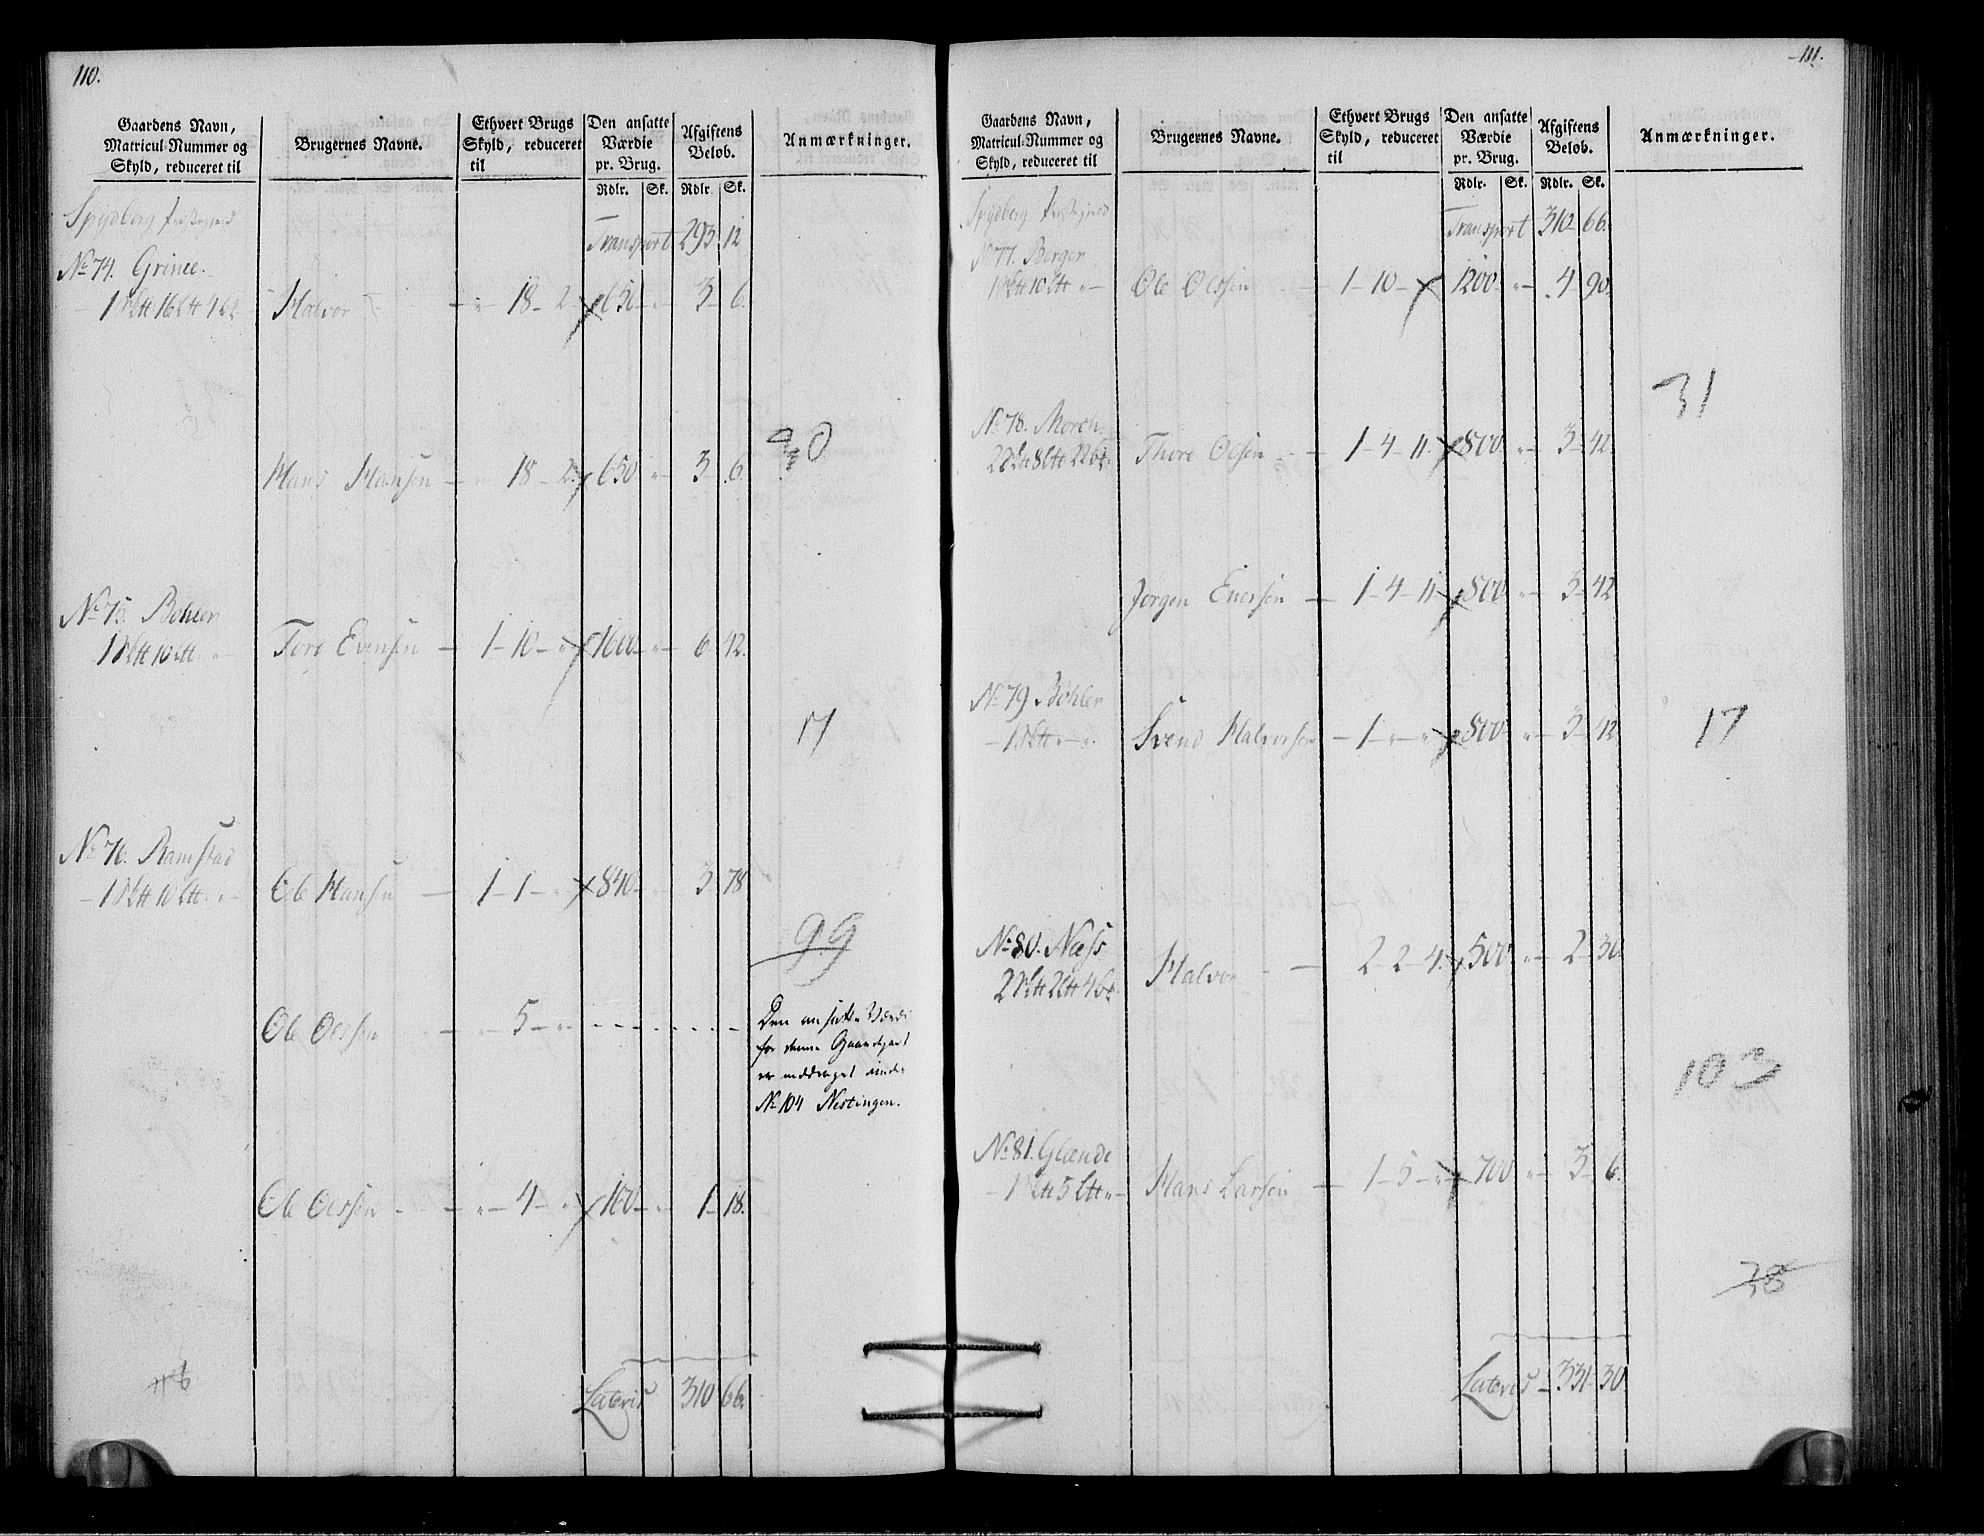 110.
Gaardens Navn, Matricul-Nummer og Skyld, reduceret til
Brugernes Navne.
Ethvert Brugs Skyld, reduceret til
Den ansatte Værdie pr. Brug.
Afgiftens Beløb.
Anmærkninger.
Rdlr. Sk. Rdlr. Sk.
Spydberg Præstegield
Transport 293 12
No 74. Grinee.
Halvor - " 18 - 2 650 - " - 3 - 6.
Hans Hansen - " 18 - 2 650 " - 3 - 6.
No 75. Bøhler
Tore Evensen - 1 - 10 - " 1600 - " - 6 - 42.
17
No 76. Ramstad
Ole Hansen - 1 - 1 - " 840 - " - 3 - 78
99
Ole Olsen - " 5 - "
Den ansatte Værdi
for denne Gaardepart
er inddraget under
No 104 Nestingen.
Ole Olssen - " - 4 - " 160 - " - 1 - 18.
Lateris 310 66.
111.
Gaardens Navn, Matricul-Nummer og Skyld, reduceret til
Brugernes Navne.
Ethvert Brugs Skyld, reduceret til
Den ansatte Værdie pr. Brug.
Afgiftens Beløb.
Anmærkninger.
Rdlr. Sk. Rdlr. Sk.
Spydberg Præstegield
Transport 310 66.
No 77. Berger
Ole Olssen - 1 - 10 - 1200 - " - 4 90.
31
No 78. Morch
Thore Olsen - 1 - 4 - 11. 800 " - 3 - 42.
Jørgen Enersen - 1 - 4 - 11 800 " - 3 - 42
No 79 Bøhler
Svend Halvorsen - 1 - " - " 800 " - 3 - 42
17
No 80. Næss
Halvor - 2 - 2 - 4. 500 " - 2 - 30.
No 81. Glænde
Hans Larsen - 1 - 5 - " 700 " - 3 - 6.
38
Lateris - 331 - 30.